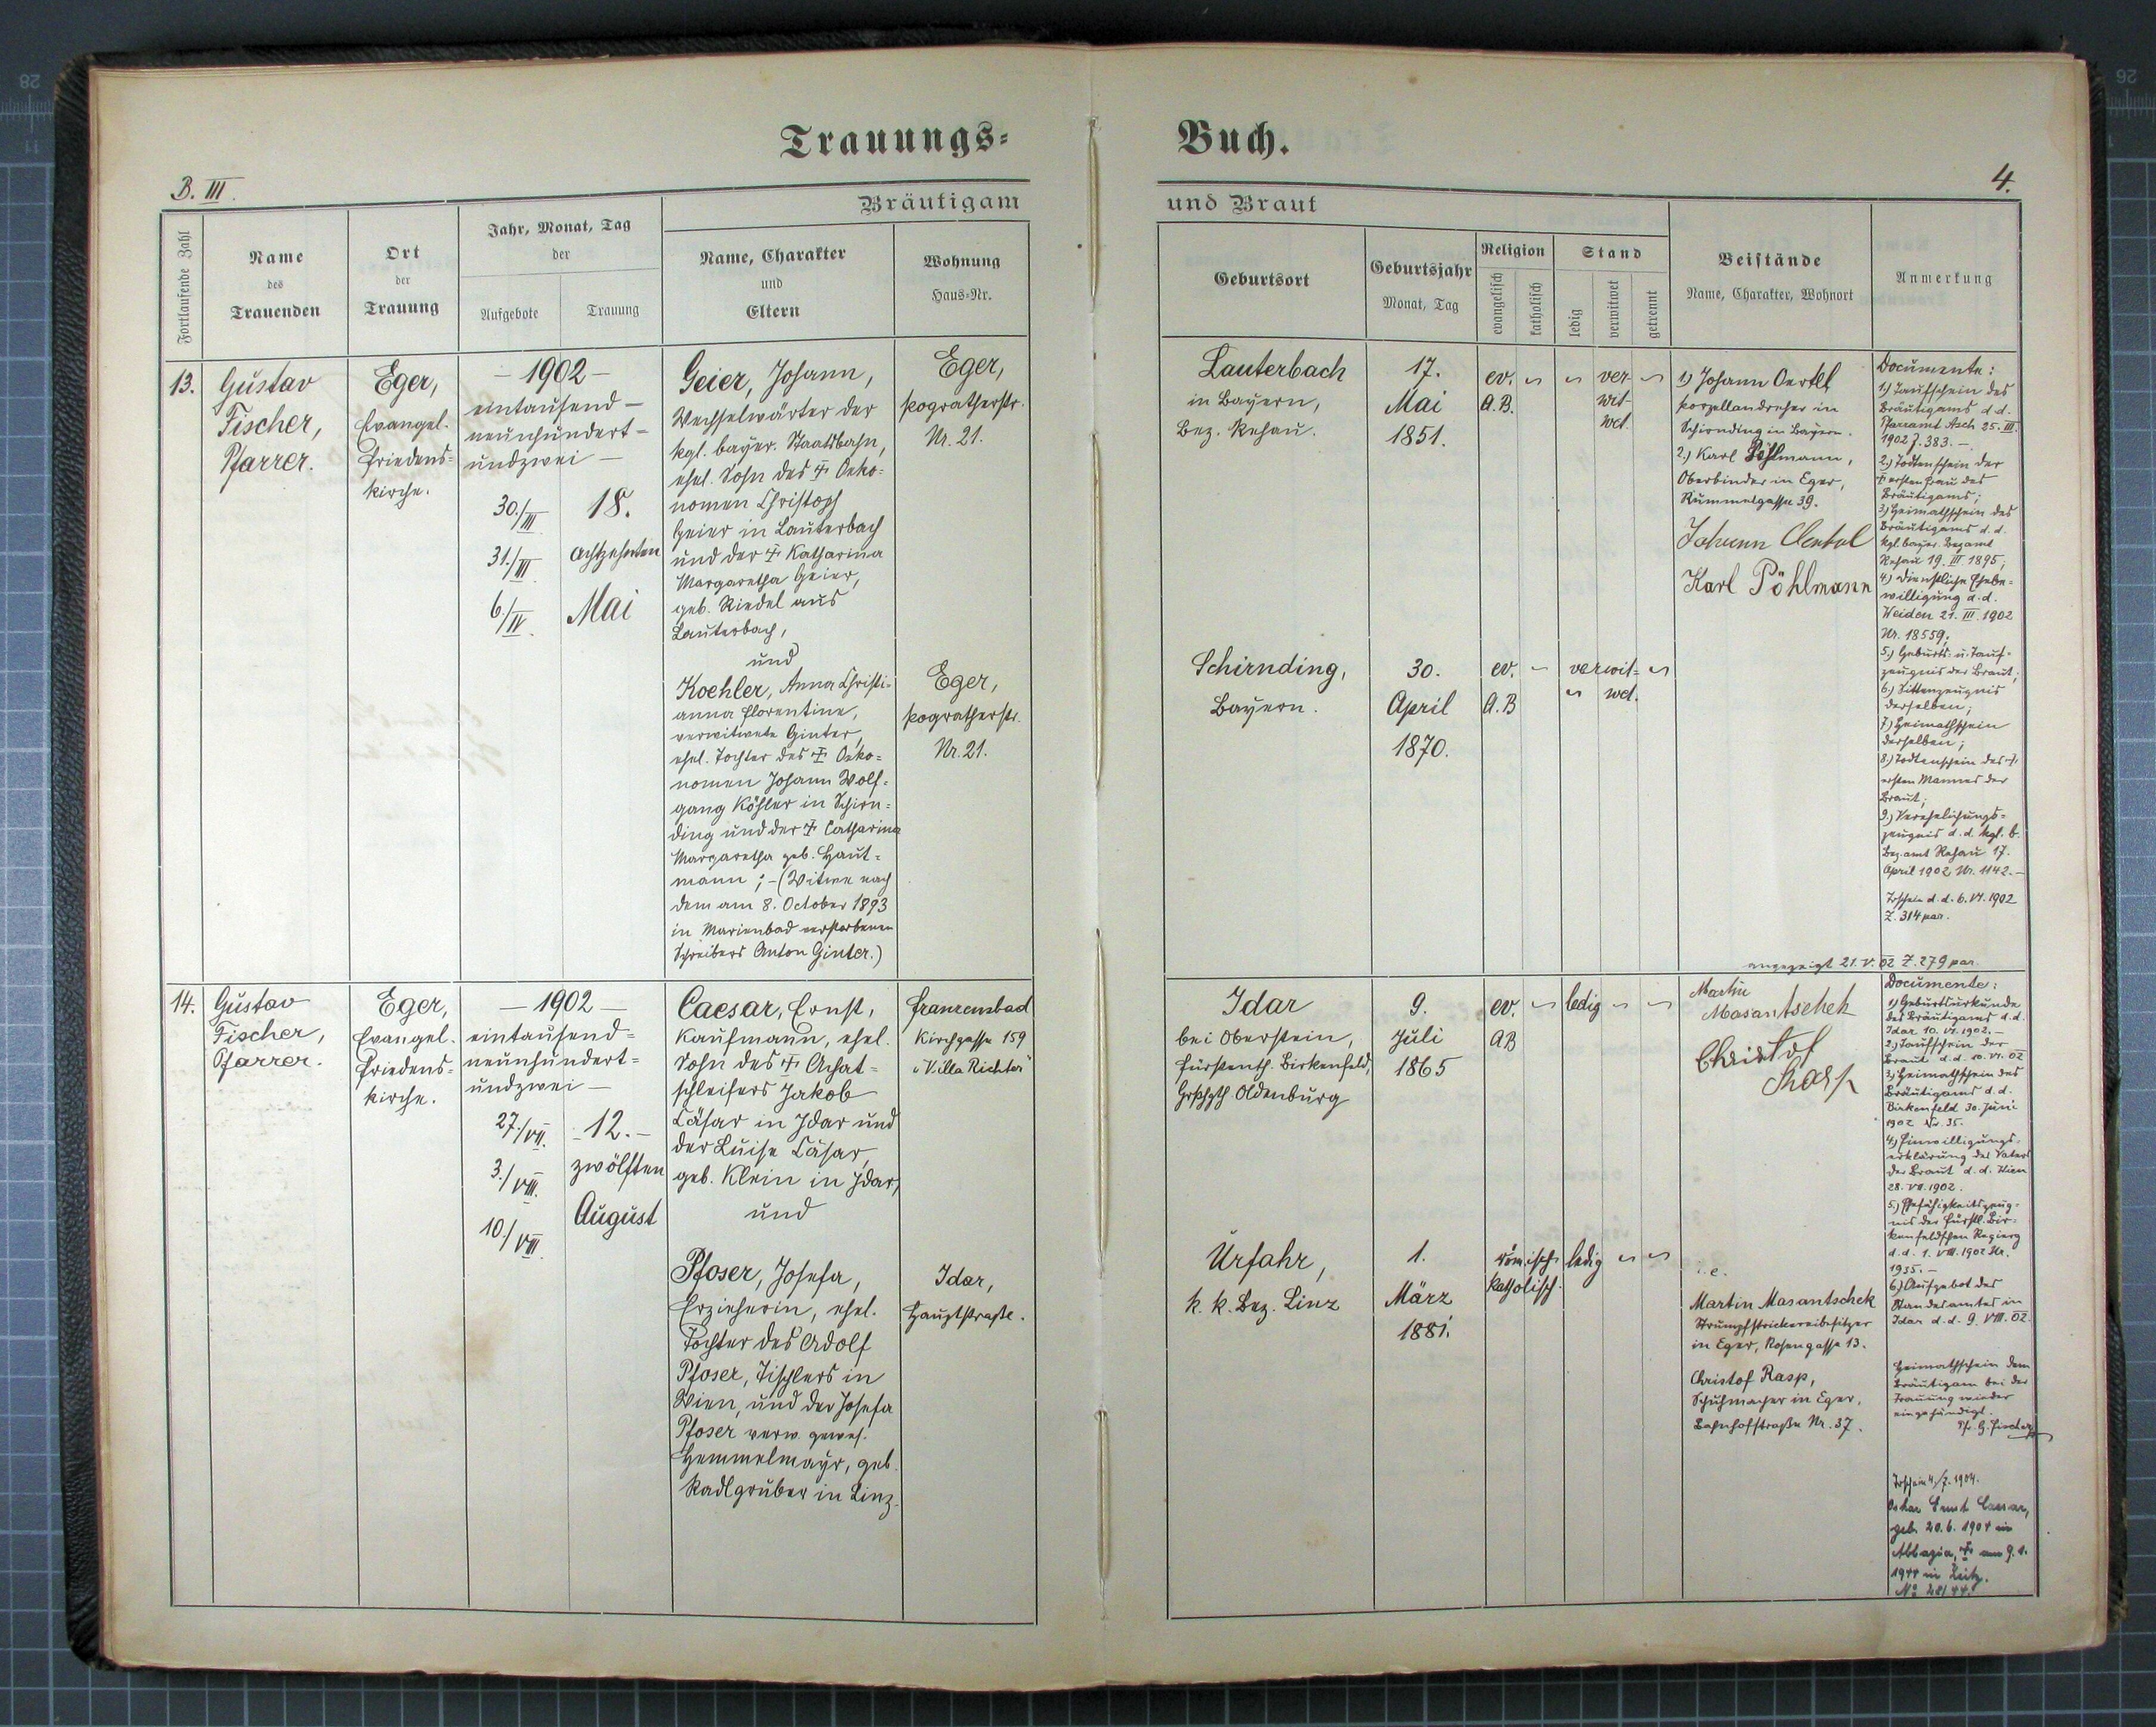 Trauungs-
Buch.
B. III.
4.
Fortlaufende Zahl
Name
des
Trauenden
Ort
der
Trauung
Jahr, Monat, Tag
der
Aufgebote
Trauung
Bräutigam
Name, Charakter
und
Eltern
Wohnung
Haus-Nr.
und Braut
Geburtsort
Geburtsjahr
Monat, Tag
Religion
evangelisch
katholisch
Stand
ledig
verwitwet
getrennt
Beistände
Name, Charakter, Wohnort
Anmerkung
13.
Gustav
Fischer,
Pfarrer.
Eger,
Evangel.
Friedens-
kirche.
- 1902 -
eintausend -
neunhundert -
undzwei -
30./III
31./III
6./IV.
18.
achtzehnten
Mai
Geier, Johann,
Wechselwärter der
kgl. bayer. Staatsbahn,
ehel. Sohn des † Oeko-
nomen Christoph
Geier in Lauterbach
und der † Katharina
Margaretha Geier,
geb. Riedel aus
Lauterbach,
und
Koehler, Anna Christi-
anna Florentine,
verwitwete Ginter,
ehel. Tochter des † Oeko-
nomen Johann Wolf-
gang Köhler in Schirn-
ding und der † Catharina
Margaretha geb. Haut-
mann; - (Witwe nach
dem am 8. October 1893
in Marienbad verstorbenen
Schreibers Anton Ginter.)
Eger,
Pograther str.
Nr. 21.
Eger,
Pograther str.
Nr. 21.
Lauterbach
in Bayern,
Bez. Rehau.
17.
Mai
1851.
ev.
A.B.
ver-
wit-
wet.
Schirnding,
Bayern.
30.
April
1870.
ev.
A.B
verwit-
wet.
1.) Johann Oertel
Porzellandreher in
Schirnding in Bayern.
2.) Karl Pöhlmann,
Oberbinder in Eger,
Rummelgasse 39.
Johann Oertel
Karl Pöhlmann
Documente:
1.) Taufschein des
Bräutigams d. d.
Pfarramt Asch 25. III.
1902 Z. 383. -
2.) Todtenschein der
† ersten Frau des
Bräutigams;
3.) Heimathschein des
Bräutigams d. d.
kgl. bayer. Bezamt
Rehau 19. III 1895;
4.) Dienstliche Ehebe-
willigung d. d.
Weiden 21. III. 1902
Nr. 18559;
5.) Geburts- u. Tauf-
zeugnis der Braut;
6.) Sittenzeugnis
derselben;
7.) Heimathschein
derselben;
8.) Todtenschein des †
ersten Mannes der
Braut;
9.) Verehelichungs-
zeugnis d. d. kgl. b.
Bez. amt Rehau 17.
April 1902 Nr. 1142. -
Trschein d. d. 6. VI. 1902
Z. 314 par.
angezeigt 21. V. 02 Z. 279 par.
14.
Gustav
Fischer,
Pfarrer.
Eger,
Evangel.
Friedens-
kirche.
- 1902 -
eintausend-
neunhundert-
undzwei -
27./VII.
3./VIII.
10./VIII.
12. -
zwölften
August
Caesar, Ernst,
Kaufmann, ehel.
Sohn des † Achat-
schleifers Jakob
Cäsar in Idar und
der Luise Cäsar,
geb. Klein in Idar,
und
Pfoser, Josefa,
Erzieherin, ehel.
Tochter des Adolf
Pfoser, Tischlers in
Wien, und der Josefa
Pfoser verw. gewes.
Hemmelmayr, geb.
Radlgruber in Linz.
Franzensbad
Kirchgasse 159
"Villa Richter"
Idar,
Hauptstraße.
Idar
bei Oberstein,
Fürstenth. Birkenfeld,
Grßhgth Oldenburg
9.
Juli
1865
ev.
AB
ledig
Urfahr,
k. k. Bez. Linz
1.
März
1881.
römisch
katholisch.
ledig
Martin
Masantschek
Christof
Rasp
i. e.
Martin Masantschek
Strumpfstrickereibesitzer
in Eger, Rosengasse 13.
Christof Rasp,
Schuhmacher in Eger,
Bahnhofstraße Nr. 37.
Documente:
1.) Geburtsurkunde
des Bräutigams d. d.
Idar 10. VI. 1902. -
2.) Taufschein der
Braut d. d. 10. VI. 02
3.) Heimathschein des
Bräutigams d. d.
Birkenfeld 30. Juni
1902 Nr. 35.
4.) Einwilligungs-
erklärung des Vaters
der Braut d. d. Wien
28. VII. 1902.
5.) Ehefähigkeitszeug-
nis der Fürstl. Bir-
kenfeldschen Regierg
d. d. 1. VIII. 1902 Nr.
1935. -
6.) Aufgebot des
Standesamtes in
Idar d. d. 9. VIII. 02.
Heimathschein dem
Bräutigam bei der
Trauung wieder
eingehändigt.
Pf. G. Fischer
Trschein 4./7. 1904.
Oskar Ernst Caesar,
geb. 20.6.1904 in
Abbazia, † am 9.1.
1944 in Zeitz.
No 28/44.